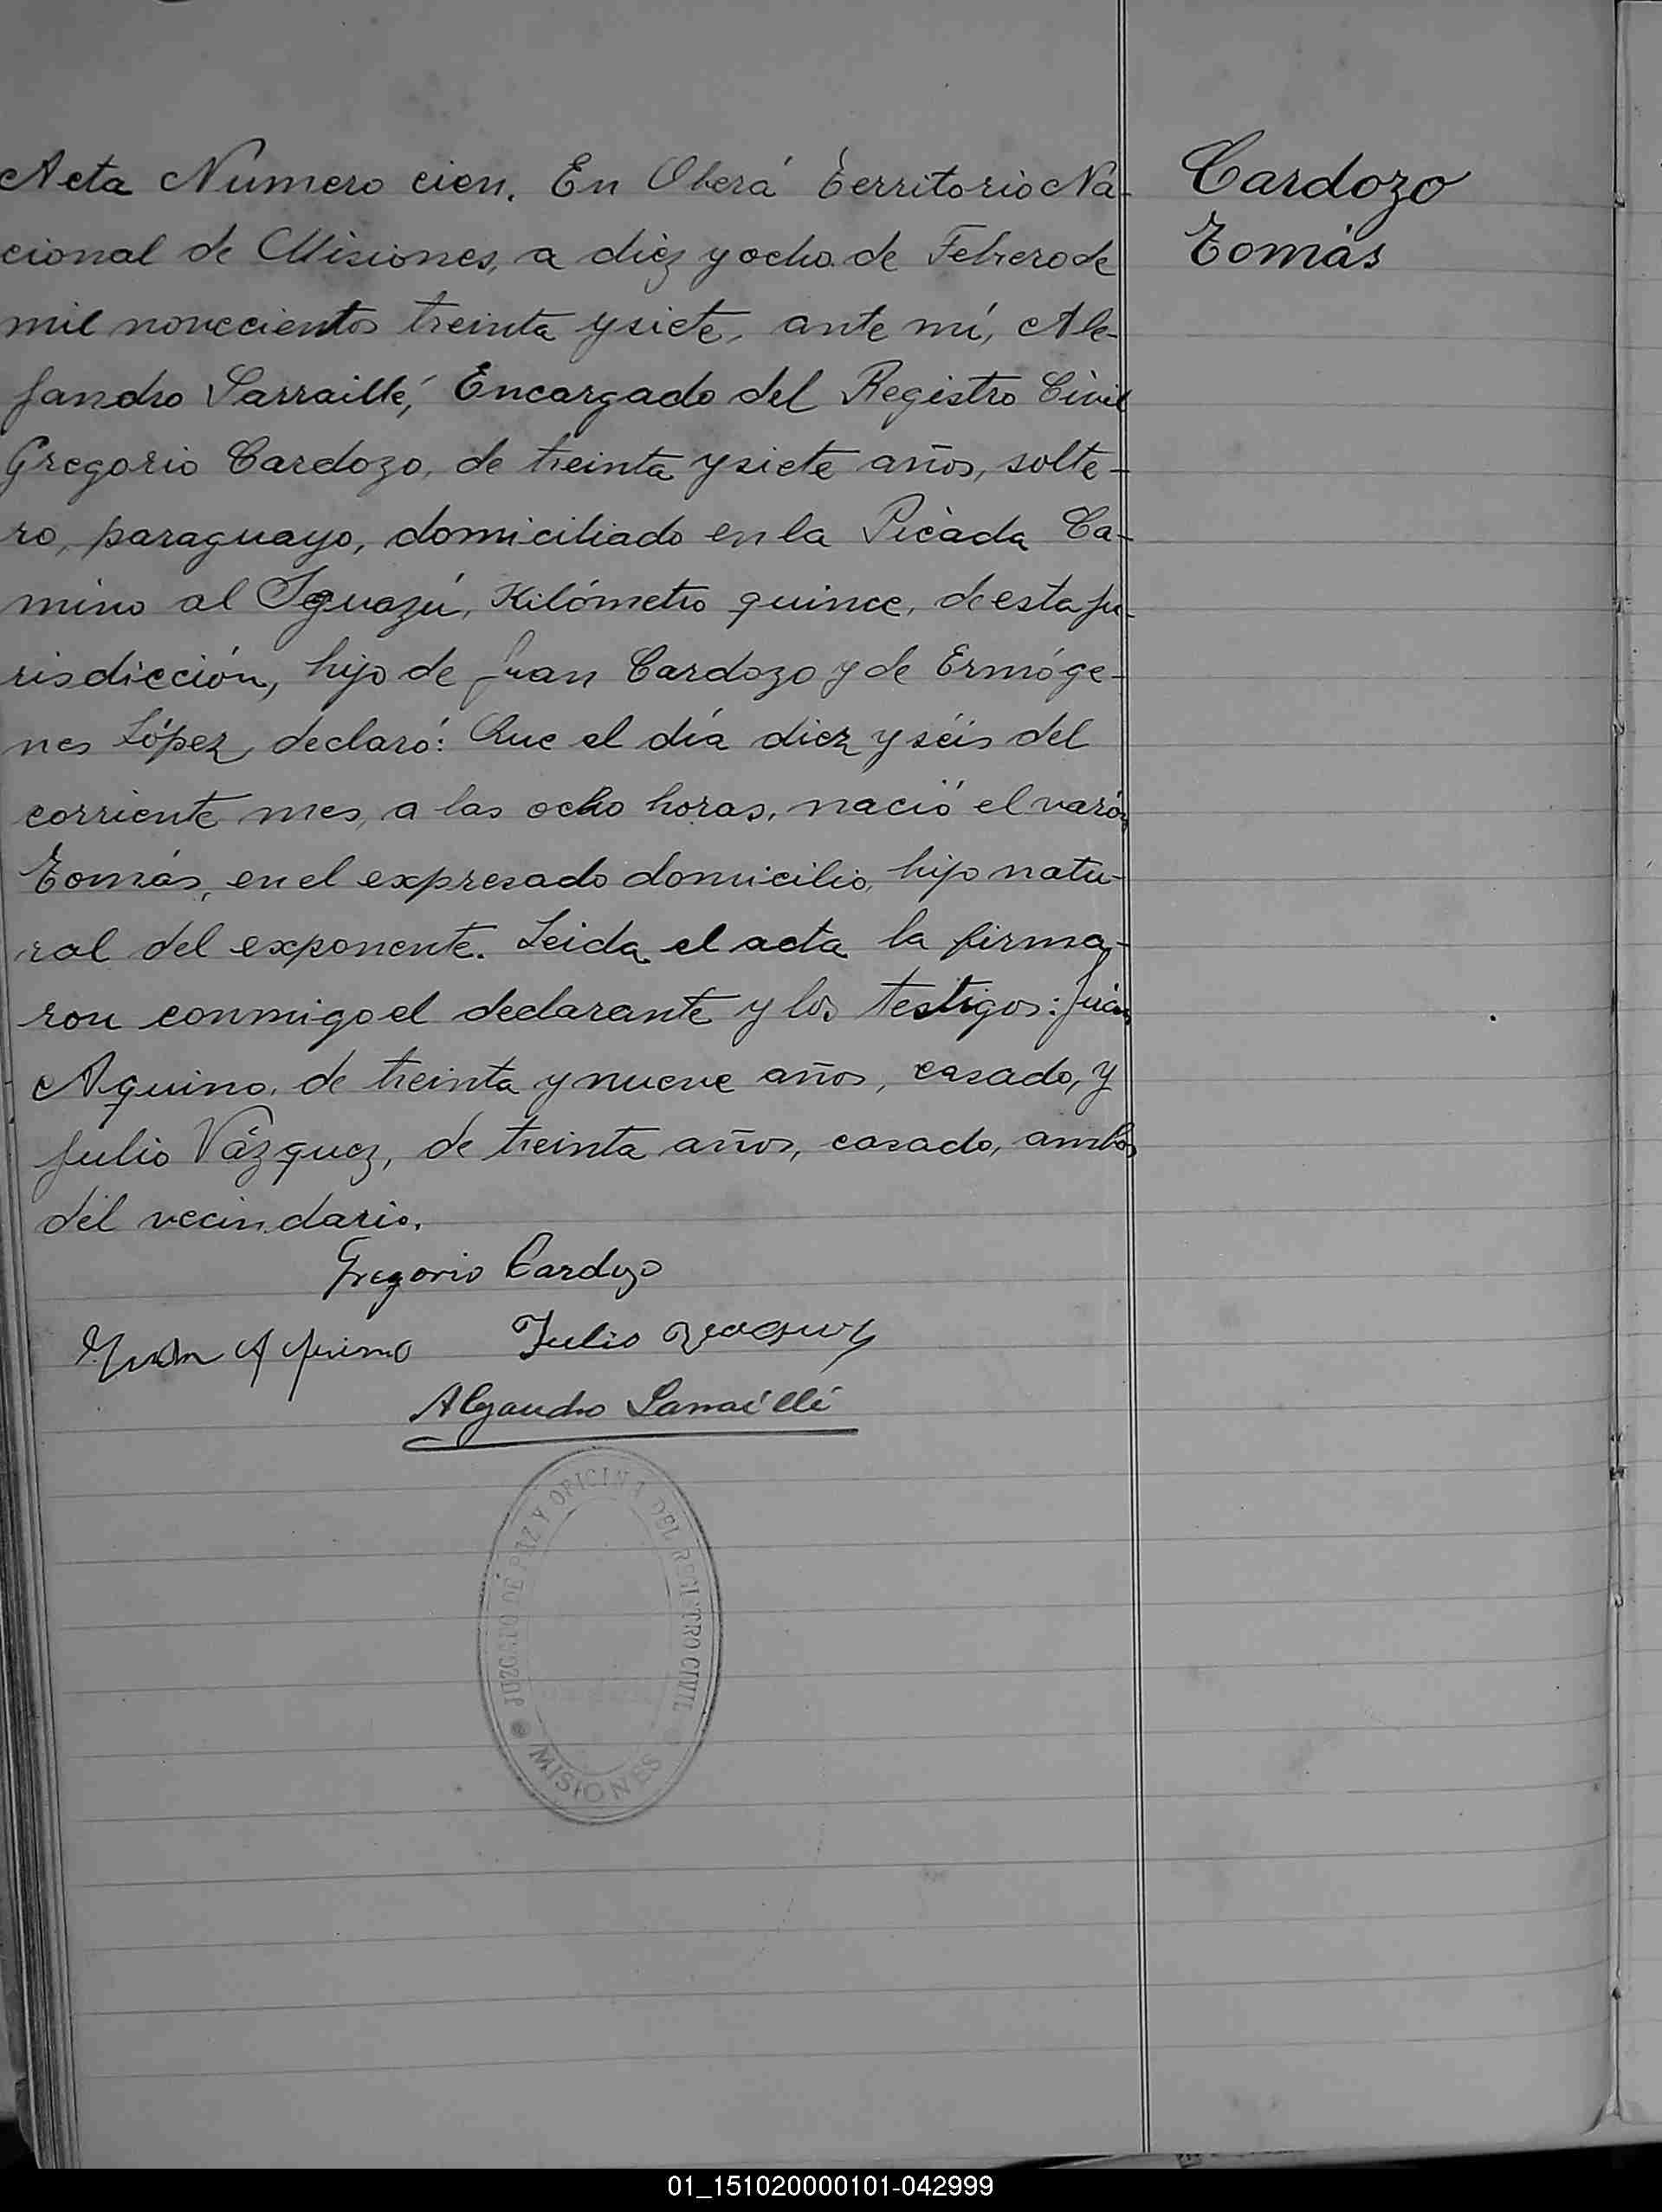 Acta Numero cien. En Oberá Territorio Na-
cional de Misiones, a diez y ocho de Febrero de
mil novecientos treinta y siete, ante mí, Ale-
jandro Sarraillé, Encargado del Registro Civil
Gregorio Cardozo, de treinta y siete años, solte-
ro, paraguayo, domiciliado en la Picada Ca-
mino al Iguazú, Kilómetro quince, de esta ju-
risdicción, hijo de Juan Cardozo y de Ermóge-
nes López, declaró: Que el día diez y séis del
corriente mes, a las ocho horas, nació el varón
Tomás, en el expresado domicilio, hijo natu-
ral del exponente. Leida el acta la firma-
ron conmigo el declarante y los testigos: Juan
Aquino, de treinta y nueve años, casado, y
Julio Vázquez, de treinta años, casado, ambos
del vecindario.
Cardozo
Tomás
Gregorio Cardozo
Juan Aquino Julio Vazquez
Alejandro Sarraillé
JUZGADO DE PAZ Y OFICINA DEL REGISTRO CIVIL
MISIONES
01_151020000101-042999